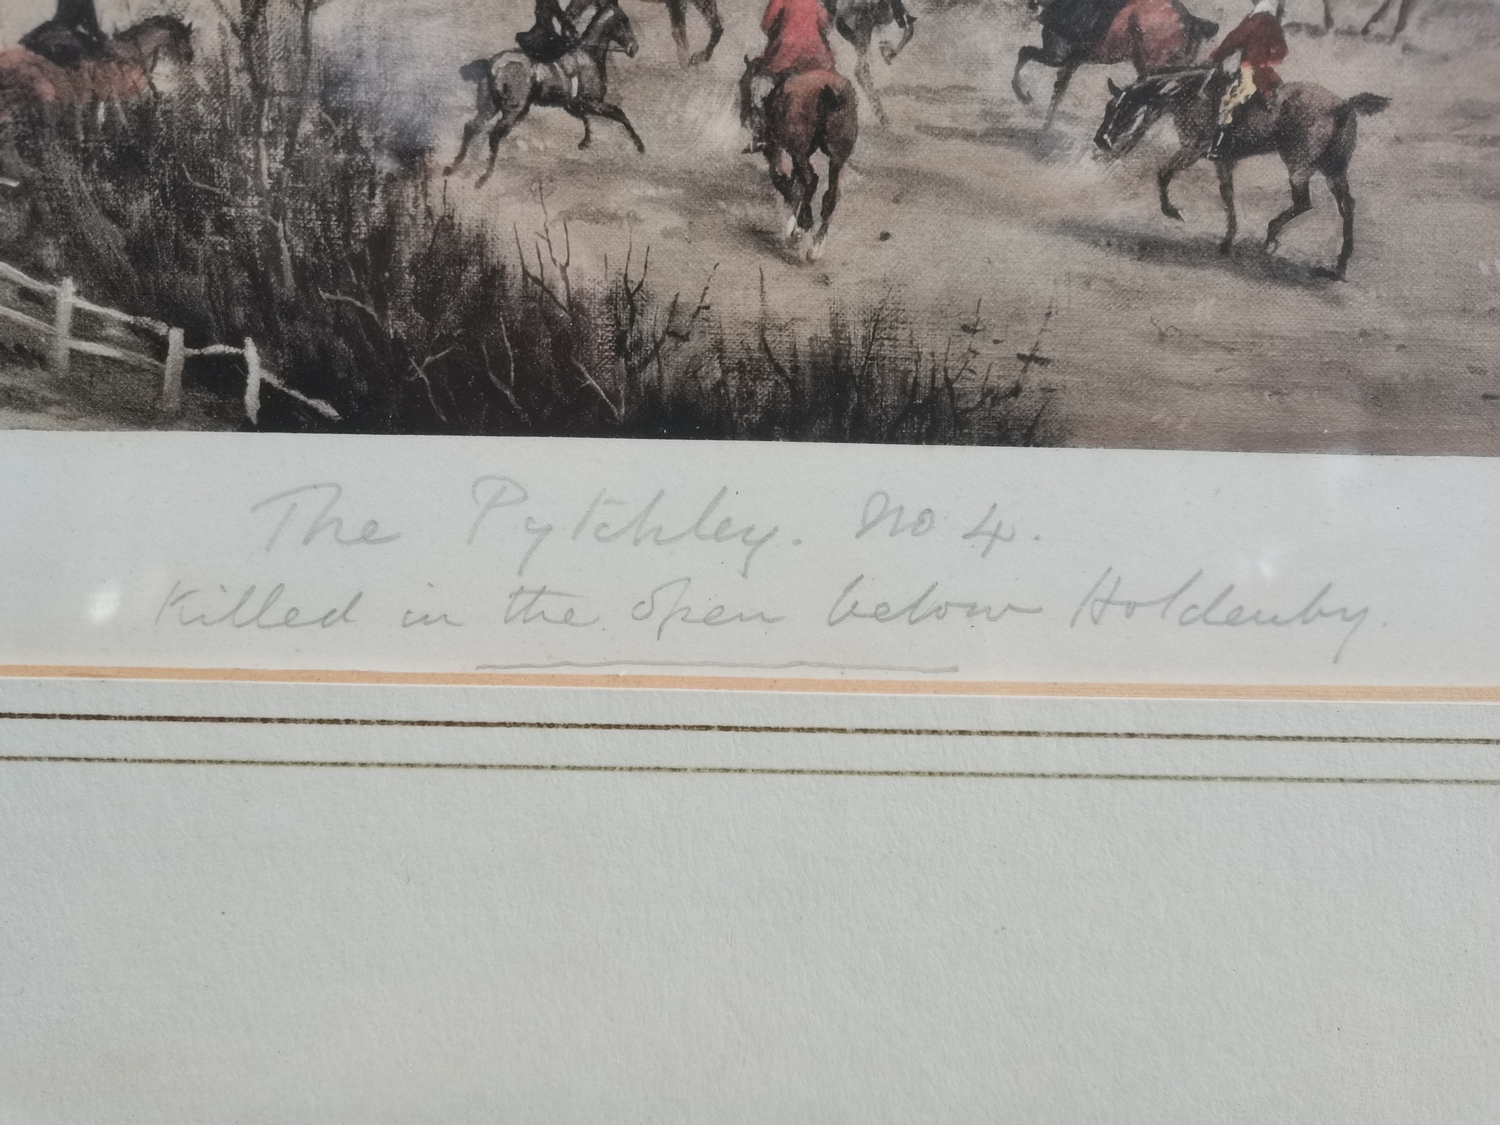 The Pytchley. No 4.
Killed in the open below Holdenby.